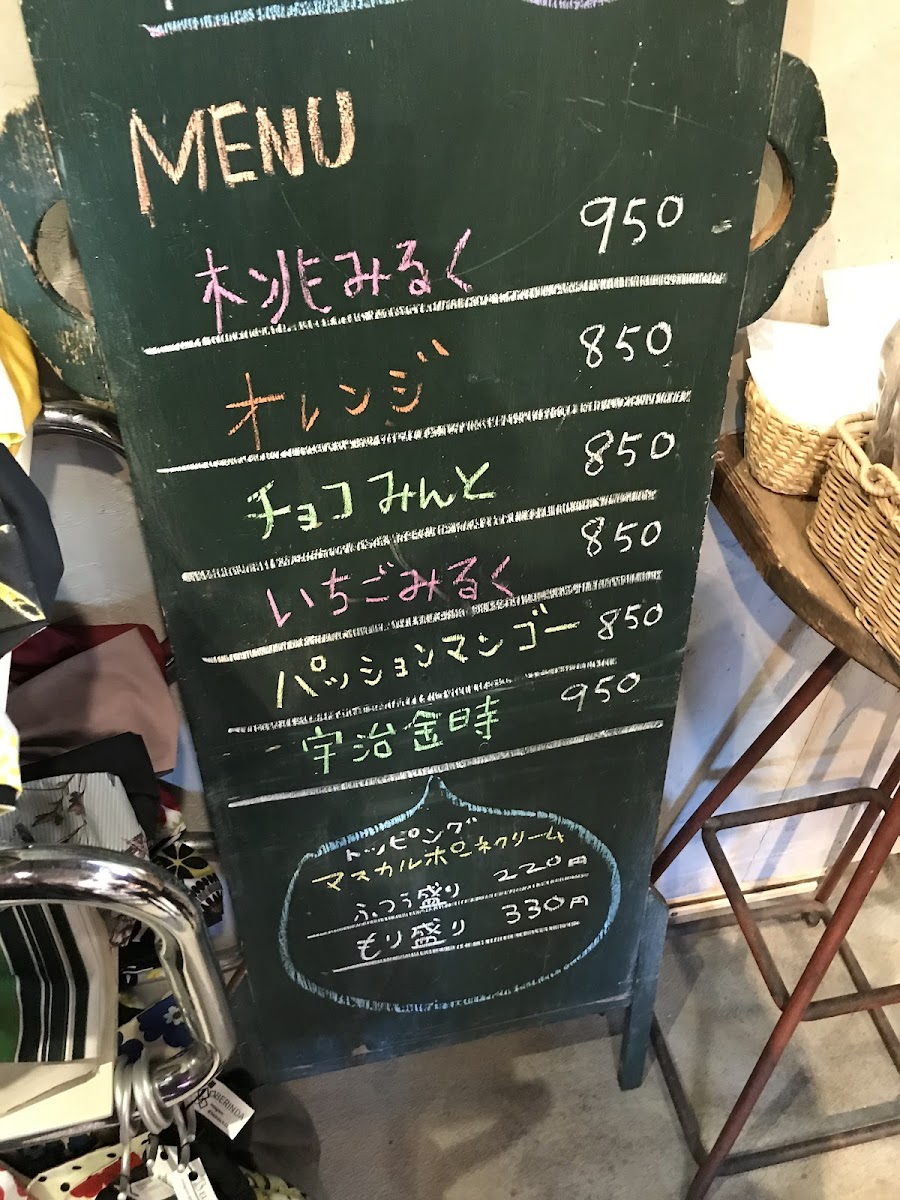 MENU
桃みるく 950
オレンジ 850
チョコみんと 850
いちごみるく 850
パッションマンゴー 850
宇治金時 950
トッピング
マスカルポーネクリーム
ふつう盛り 220円
もり盛り 330円